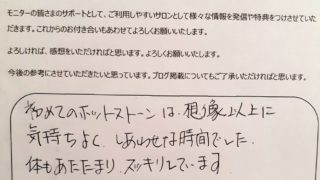 モニターの皆さまのサポートとして、ご利用しやすいサロンとして様々な情報を発信や特典をつけさせていた
だきます。これからのお付き合いもあわせてよろしくお願いいたします。
よろしければ、感想をいただければと思います。よろしくお願いいたします。
今後の参考にさせていただきたいと思っています。ブログ掲載についてもご了承いただければと思います。
初めてのホットストーンは、想像以上に
気持ちよく、しあわせな時間でした。
体もあたたまり、スッキリしています